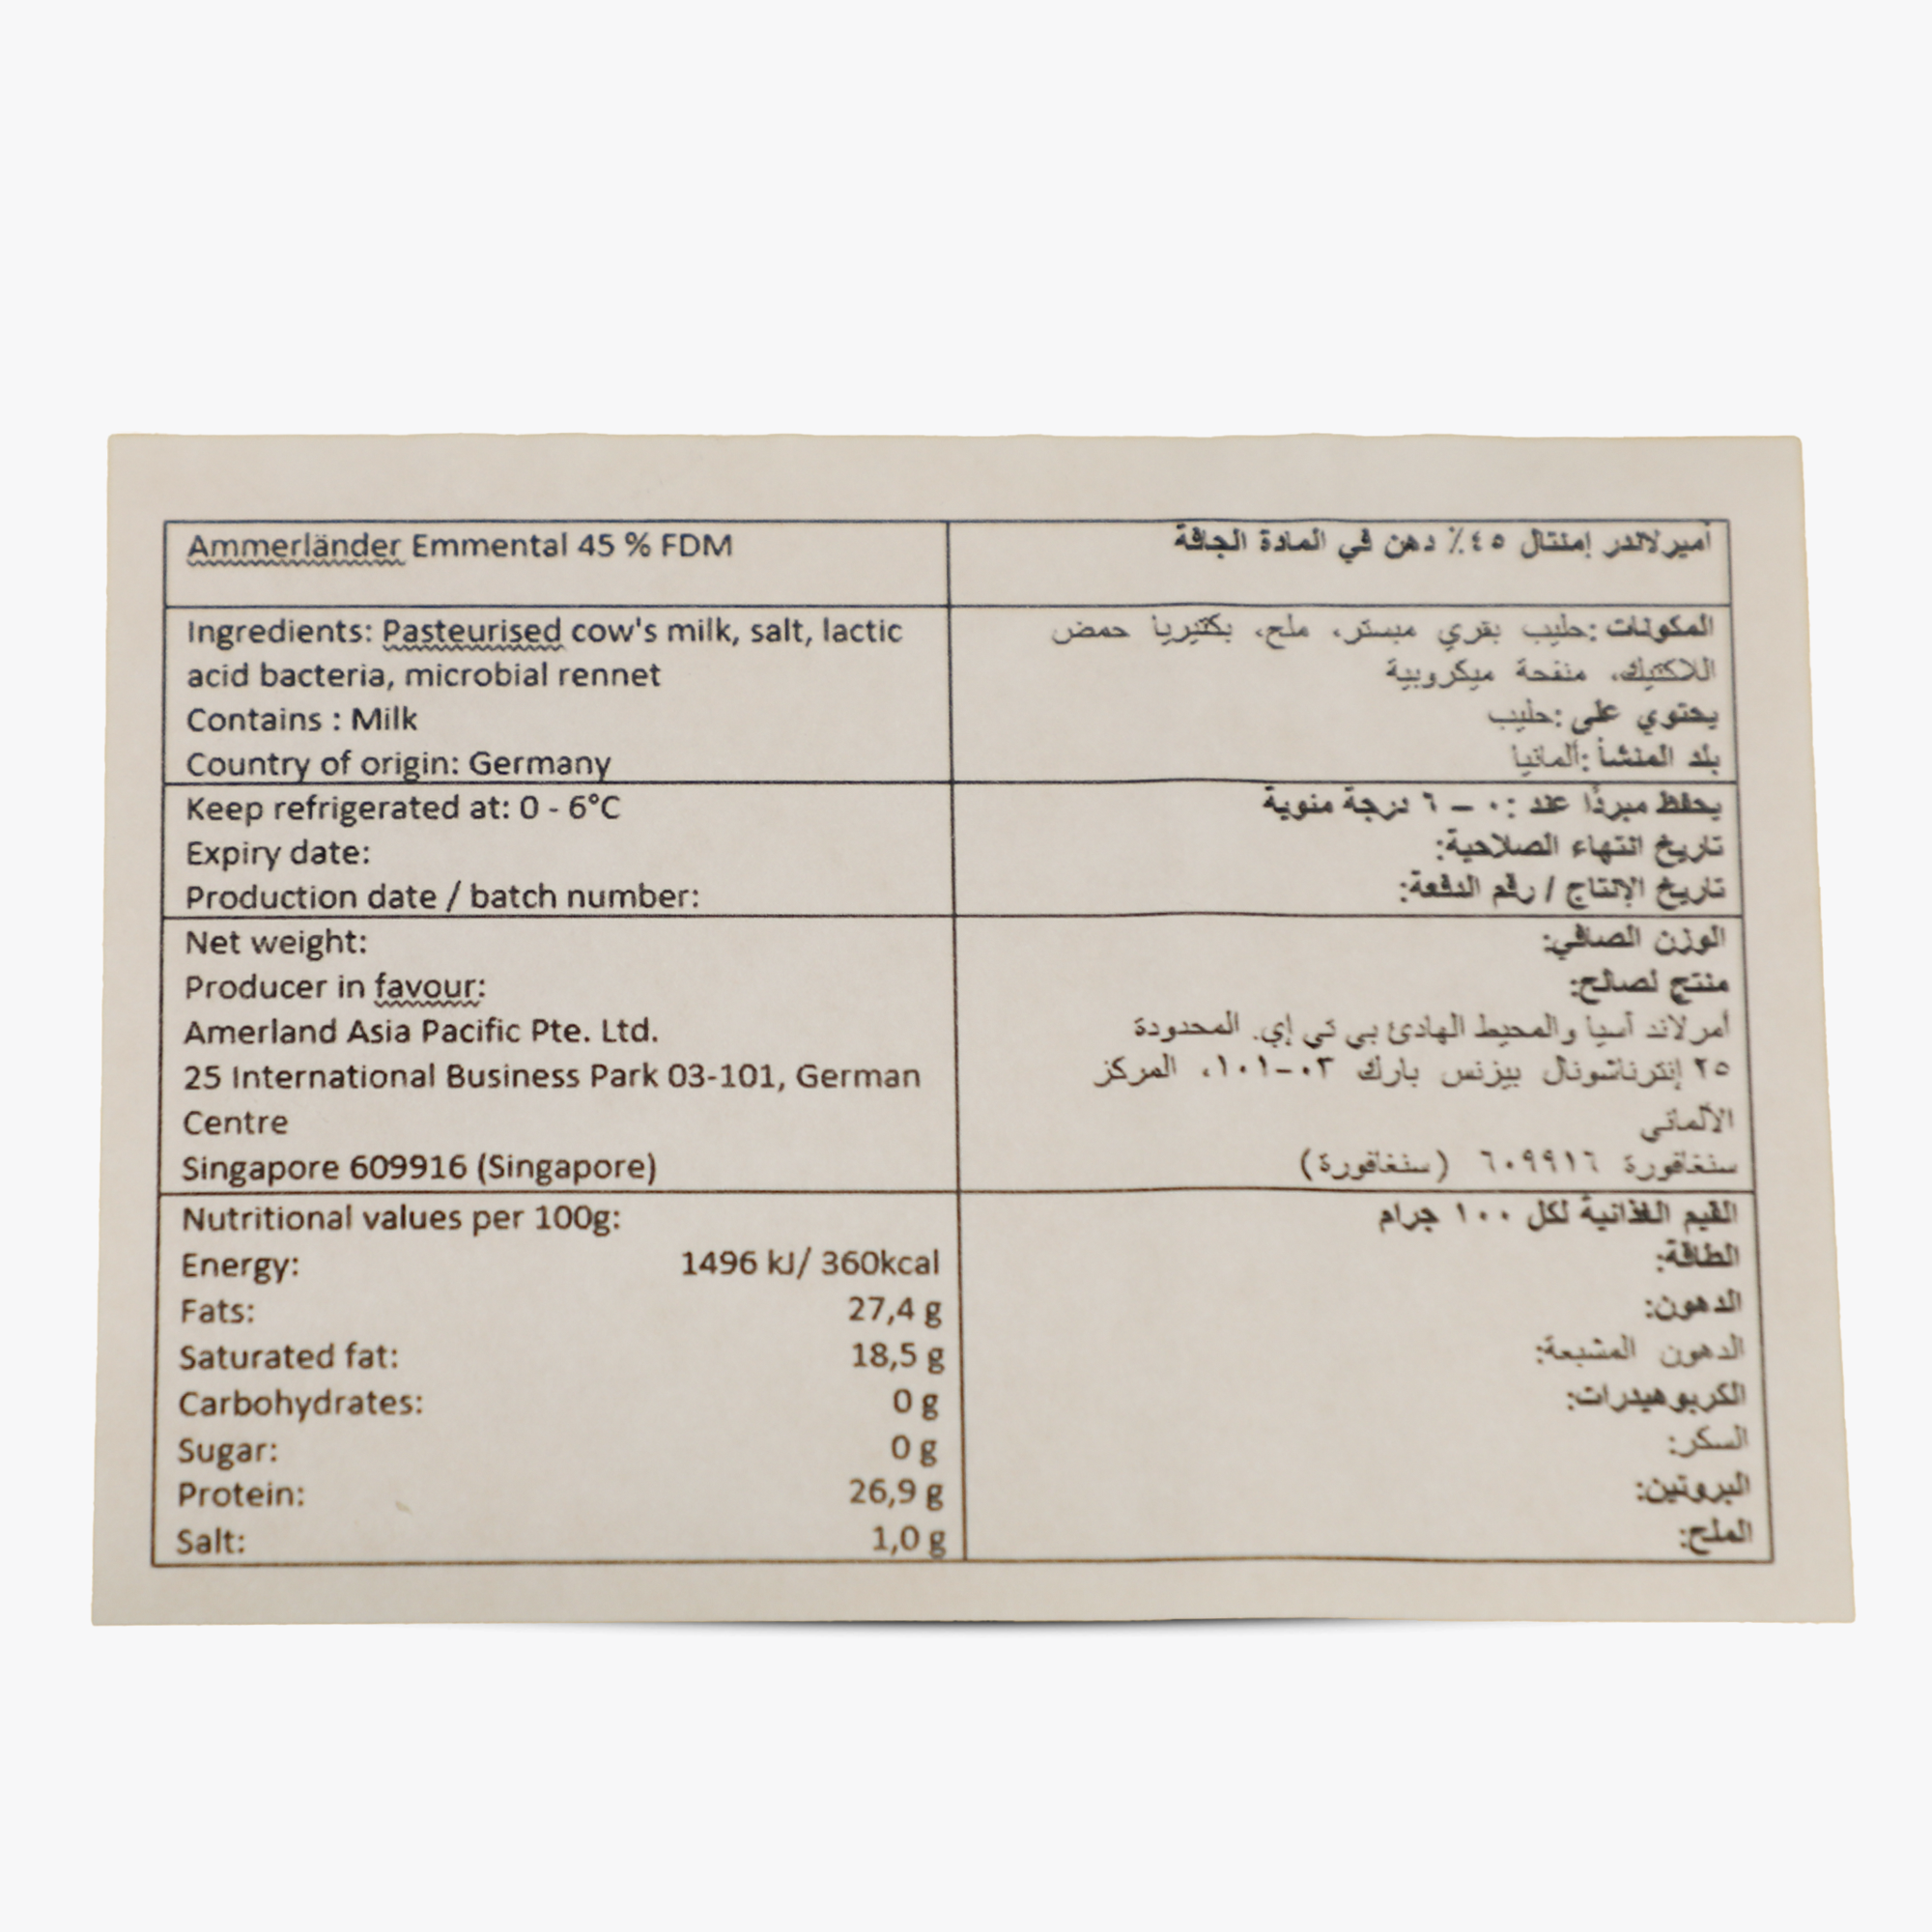 Ammerländer Emmental 45 % FDM
Ingredients: Pasteurised cow's milk, salt, lactic
acid bacteria, microbial rennet
Contains : Milk
Country of origin: Germany
Keep refrigerated at: 0 - 6°C
Expiry date:
Production date / batch number:
Net weight:
Producer in favour:
Amerland Asia Pacific Pte. Ltd.
25 International Business Park 03-101, German
Centre
Singapore 609916 (Singapore)
Nutritional values per 100g:
Energy: 1496 kJ/ 360kcal
Fats: 27,4 g
Saturated fat: 18,5 g
Carbohydrates: 0 g
Sugar: 0 g
Protein: 26,9 g
Salt: 1,0 g
أميرلاندر إمنتال ٤٥٪ دهن في المادة الجافة
المكونات :حليب بقري مبستر، ملح، بكتيريا حمض
اللاكتيك، منفحة ميكروبية
يحتوي على :حليب
بلد المنشأ :ألمانيا
يحفظ مبردًا عند :٠ – ٦ درجة مئوية
تاريخ انتهاء الصلاحية:
تاريخ الإنتاج / رقم الدفعة:
الوزن الصافي:
منتج لصالح:
أمرلاند آسيا والمحيط الهادئ بي تي إي. المحدودة
٢٥ إنترناشونال بيزنس بارك ٠٣-١٠١، المركز
الألماني
سنغافورة ٦٠٩٩١٦ (سنغافورة)
القيم الغذائية لكل ١٠٠ جرام
الطاقة:
الدهون:
الدهون المشبعة:
الكربوهيدرات:
السكر:
البروتين:
الملح: